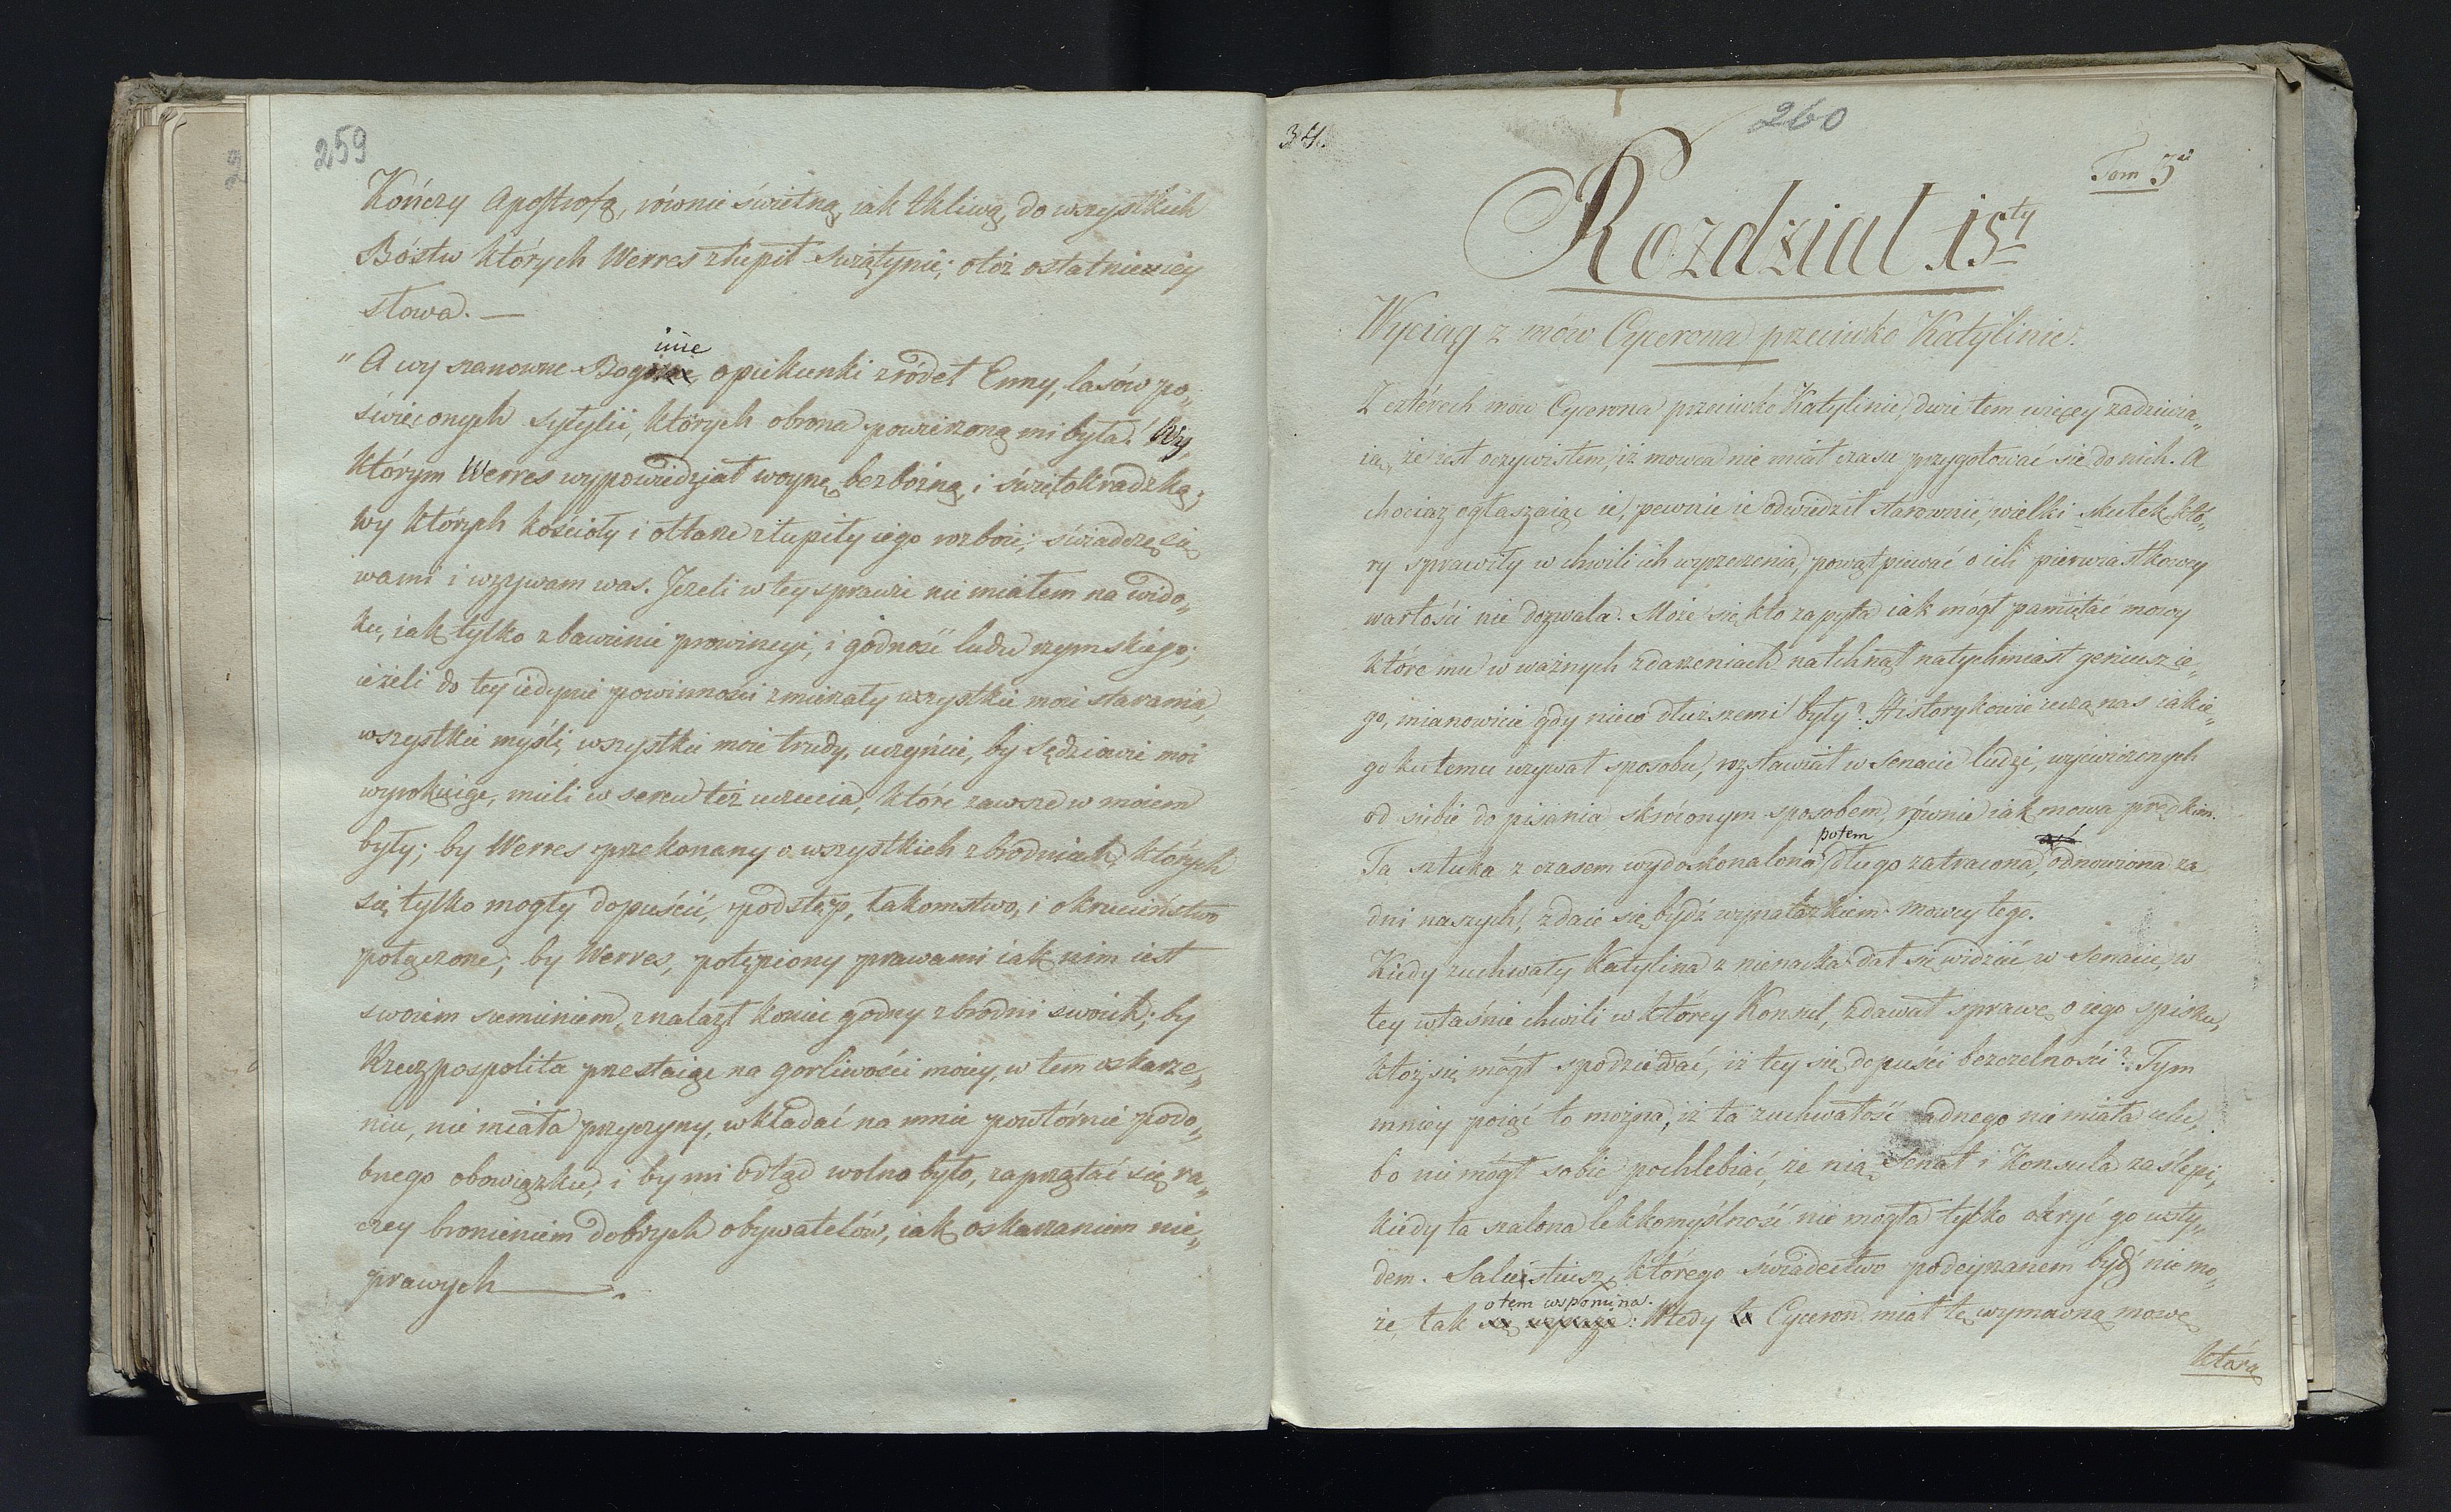 259
Kończy Apostrofą, równie świetną iak tkliwą, do wszystkich
Bóstw których Werres złupił świątynie; otoż ostatnie iey
słowa. —
inie
" A wy szanowne Boginie opiekunki zródeł Enny, lasów po„
święconych Sycylii, których obrona powierzoną mi była! Wy,
którym Werres wypowiedział woynę bezbożną i świętokradzką;
wy których kościoły i ołtarze złupiły iego rozboie; świadczę się
wami i wzywam was. Jeżeli w tey sprawie nie miałem na wido„
ku, iak tylko zbawienie prowincyi, i godność ludu rzymskiego;
ieżeli do tey iedynie powinności zmierzały wszystkie moie starania,
wszystkie myśli, wszystkie moie trudy, uczyńcie, by Sędziowie moi
wyrokuiąc, mieli w sercu też uczucia, które zawsze w moiem
były; by Werres przekonany o wszystkich zbrodniach, których
się tylko mogły dopuścić, podstęp, łakomstwo, i okrucieństwo
połączone; by Werres, potępiony prawami iak nim iest
swoiem sumieniem, znalazł koniec godny zbrodni swoich; by
Rzeczpospolita przestaiąc na gorliwości moiey, w tem oskarże„
niu, nie miała przyczyny, wkładać na mnie powtórnie podo„
bnego obowiązku, i by mi odtąd wolno było, zaprzątać się ra„
czey bronieniem dobrych obywatelów, iak oskarżaniem nie„
prawych —.
34.
260
Tom 3ci
Rozdział 1szty
Wyciąg z mów Cycerona przeciwko Katylinie.
Z czterech mów Cycerona przeciwko Katylinie, dwie tem więcey zadziwia„
ią, że iest oczywistem, iż mowca nie miał czasu przygotować się do nich. A
chociaż ogłaszaiąc ie, pewnie ie odwiedził starownie, wielki skutek któ„
ry sprawiły w chwili ich wyrzeczenia, powątpiewać o ich pierwiastkowey
wartości nie dozwala. Może się kto zapyta iak mógł pamiętać mowy
które mu w ważnych zdarzeniach natchnął natychmiast geniusz ie„
go, mianowicie gdy nieco dłuższemi były? Historykowie uczą nas iakie„
go ku temu używał sposobu, rozstawiał w Senacie ludzi, wyćwiczonych
od siebie do pisania skróconym sposobem, równie iak mowa prędkim.
potem
Ta sztuka z czasem wydoskonalona długo zatracona, odnowiona za
dni naszych, zdaie się bydź wynalazkiem mowcy tego.
Kiedy zuchwały Katylina z nienacka dał się widzieć w Senacie, w
tey właśnie chwili w którey Konsul, zdawał sprawę o iego spisku,
ktoż się mógł spodziewać, iż tey się dopuści bezczelności? Tym
mniey poiąć to można, iż ta zuchwałość żadnego nie miała celu,
bo nie mógł sobie pochlebiać, że nią Senat i Konsula zaślepi,
kiedy ta szalona lekkomyślność nie mogła tylko okryć go wsty„
dem. Salustiusz, którego świadectwo podeyrzanem bydź nie mo„
o tem wspomina.
że, tak: Wtedy Cyceron miał tę wymowną mowę
którą